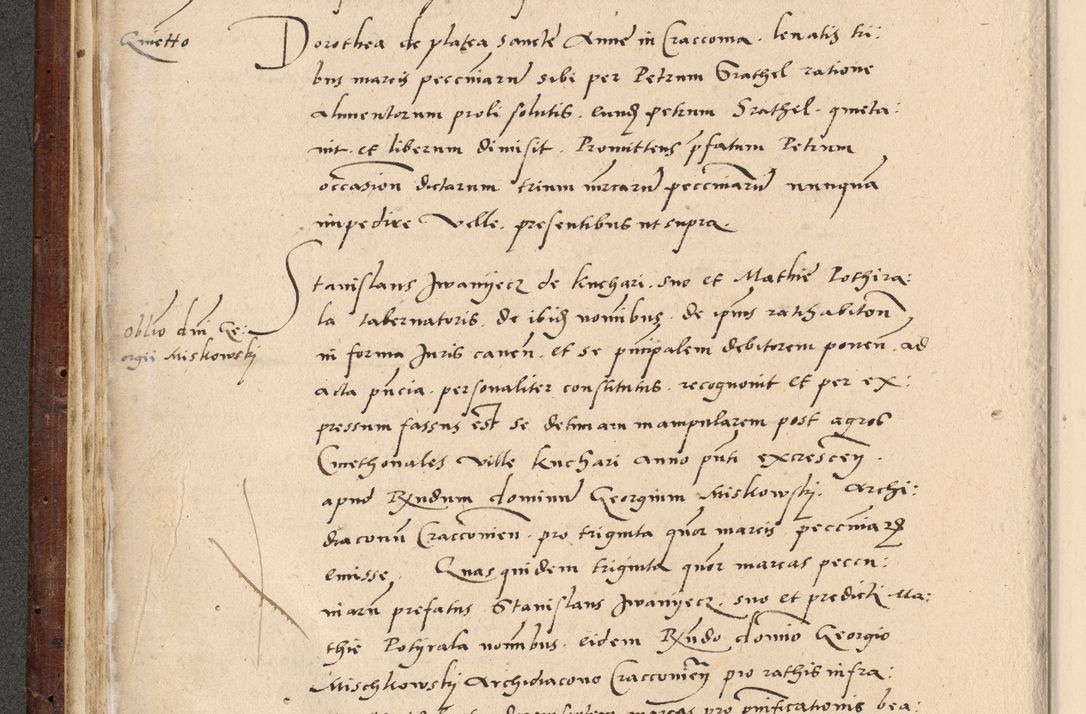 Quietto
Dorothea de platea sancte Anne in Craccovia . levatis tri:
bus marcis pecuniarum sibi per Petrum Grathel ratione
alimentorum proli solutis . eund petrum Srathel . quieta:
vit . et liberum dimisit . Promittens pfatum Petrum
occasion dictarum trium mrcaru pecuniaru nunqua
impedire velle . presentibus ut supra
Stanislaus Jwanyecz de kuchari . suo et Mathie Pothira:
la tabernatoris . de ibid nominibus . de ipius ratihabiton
Oblio dni Ge:
orgii Miskowskj
in forma Juris caven . et se principalem debitorem ponen . ad
acta pncia . personaliter constitutus . recognovit et per ex:
pressum fassus est se decimam manipularem post agros
Cmethonales ville kuchari anno pnti excrescen .
apud Rndum dominu Georgium Miskowskj . Archi:
diaconu Craccovien . pro triginta quor marcis . pecunia
emisse . Quas quidem triginta quor marcas pecu:
niaru prefatus Stanislaus Jwanyecz . suo et predicti Ma:
thie Potyrala nominbus . eidem Rndo domino Georgio
Mischkowskj Archidiacono Craccovien pro rathis infra:
marcas pro purificationis bea: